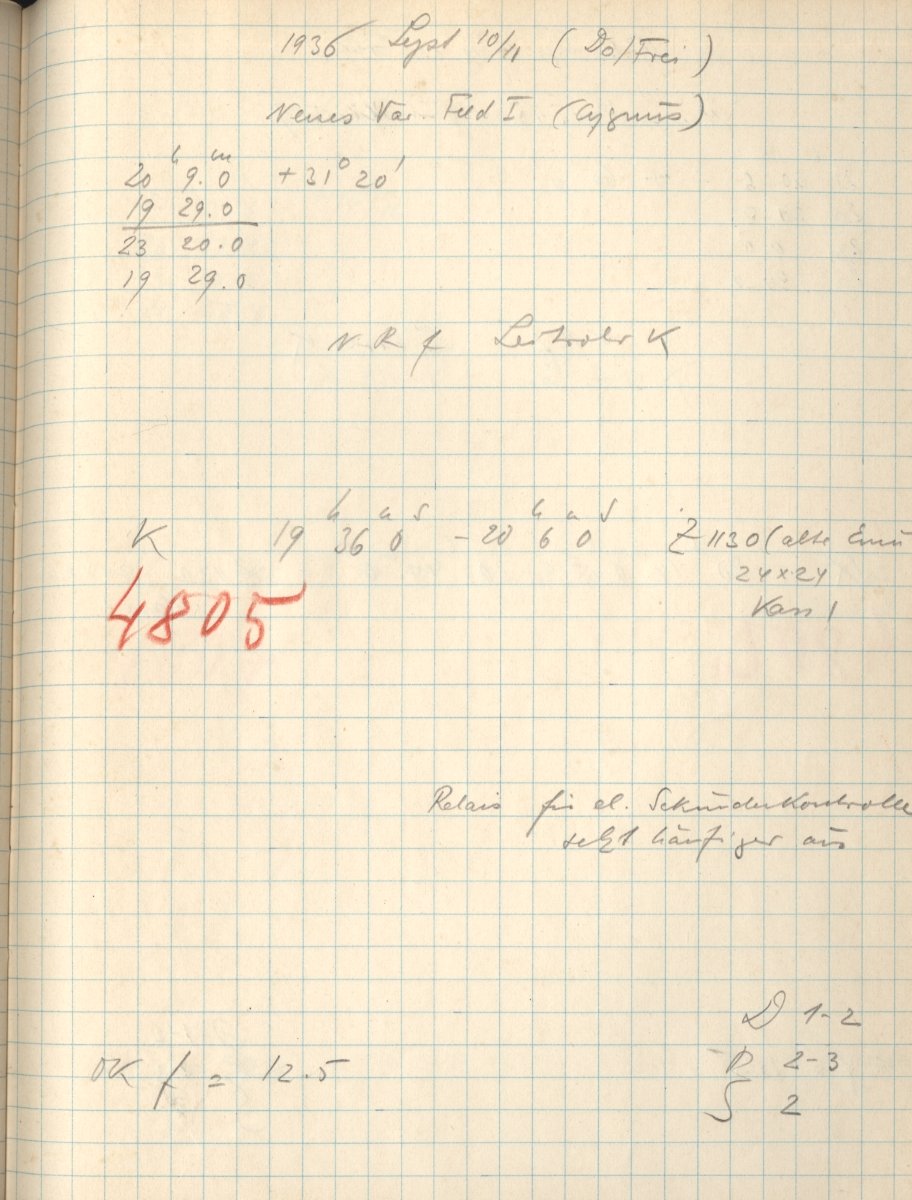 1936 Sept 10/11 (Do/Frei)
Neues Var. Feld I (Cygnus)
20h 9.m0 +31° 20'
19 29.0
23 20.0
19 29.0
N R f Leitrohr K
K 19h 36m 0s - 20h 6m 0s Z 1130 (alte Emu
24x24
Kass 1
4805
Relais für el. Sekundenkontrolle
setzt häufiger aus
D 1-2
OK f = 12.5 P 2-3
S 2